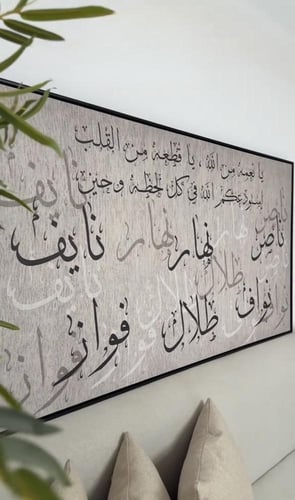 يا نعمه من الله ، يا قطعه من القلب
استودعكم الله في كل لحظه وحين
ناصر نهار نهار نايف
نواف طلال فواز